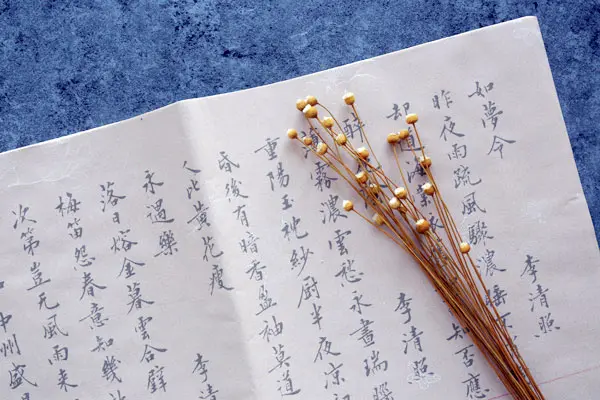 如夢令 李清照
昨夜雨疏風驟濃睡不
却道海 知否應
醉 李清照
霧濃雲愁永晝瑞
重陽玉枕紗厨半夜凉初
昏後有暗香盈袖莫道
人比黃花瘦
永遇樂 李清
落日熔金暮雲合璧
梅笛怨春意知幾
次第豈无風雨來
中州盛